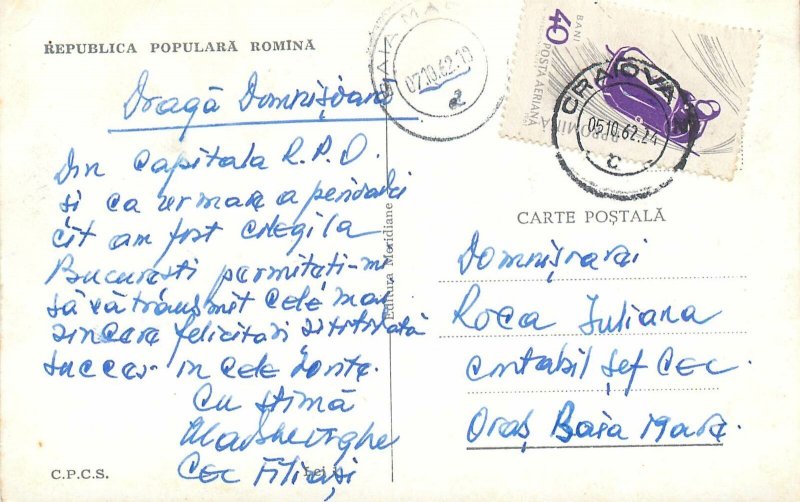 REPUBLICA POPULARĂ ROMÎNĂ
Dragă Domnișoară
Din Capitala R.P.D.
și ca urmare a perioadei
cît am fost colegi la
București permiteți-mi
să vă transmit cele mai
sincere felicitări și totodată
succes în cele dorite.
Cu stimă
Gheorghe
CEC Filiași
C.P.C.S.
Lei
Editura Meridiane
BAIA MAR
07.10.62.19
2
40
BANI
POSTA AERIANA
CRAIOVA
05.10.62.24
C
CARTE POȘTALĂ
Domnișoarei
Roca Iuliana
contabil șef CEC.
Oraș Baia Mare